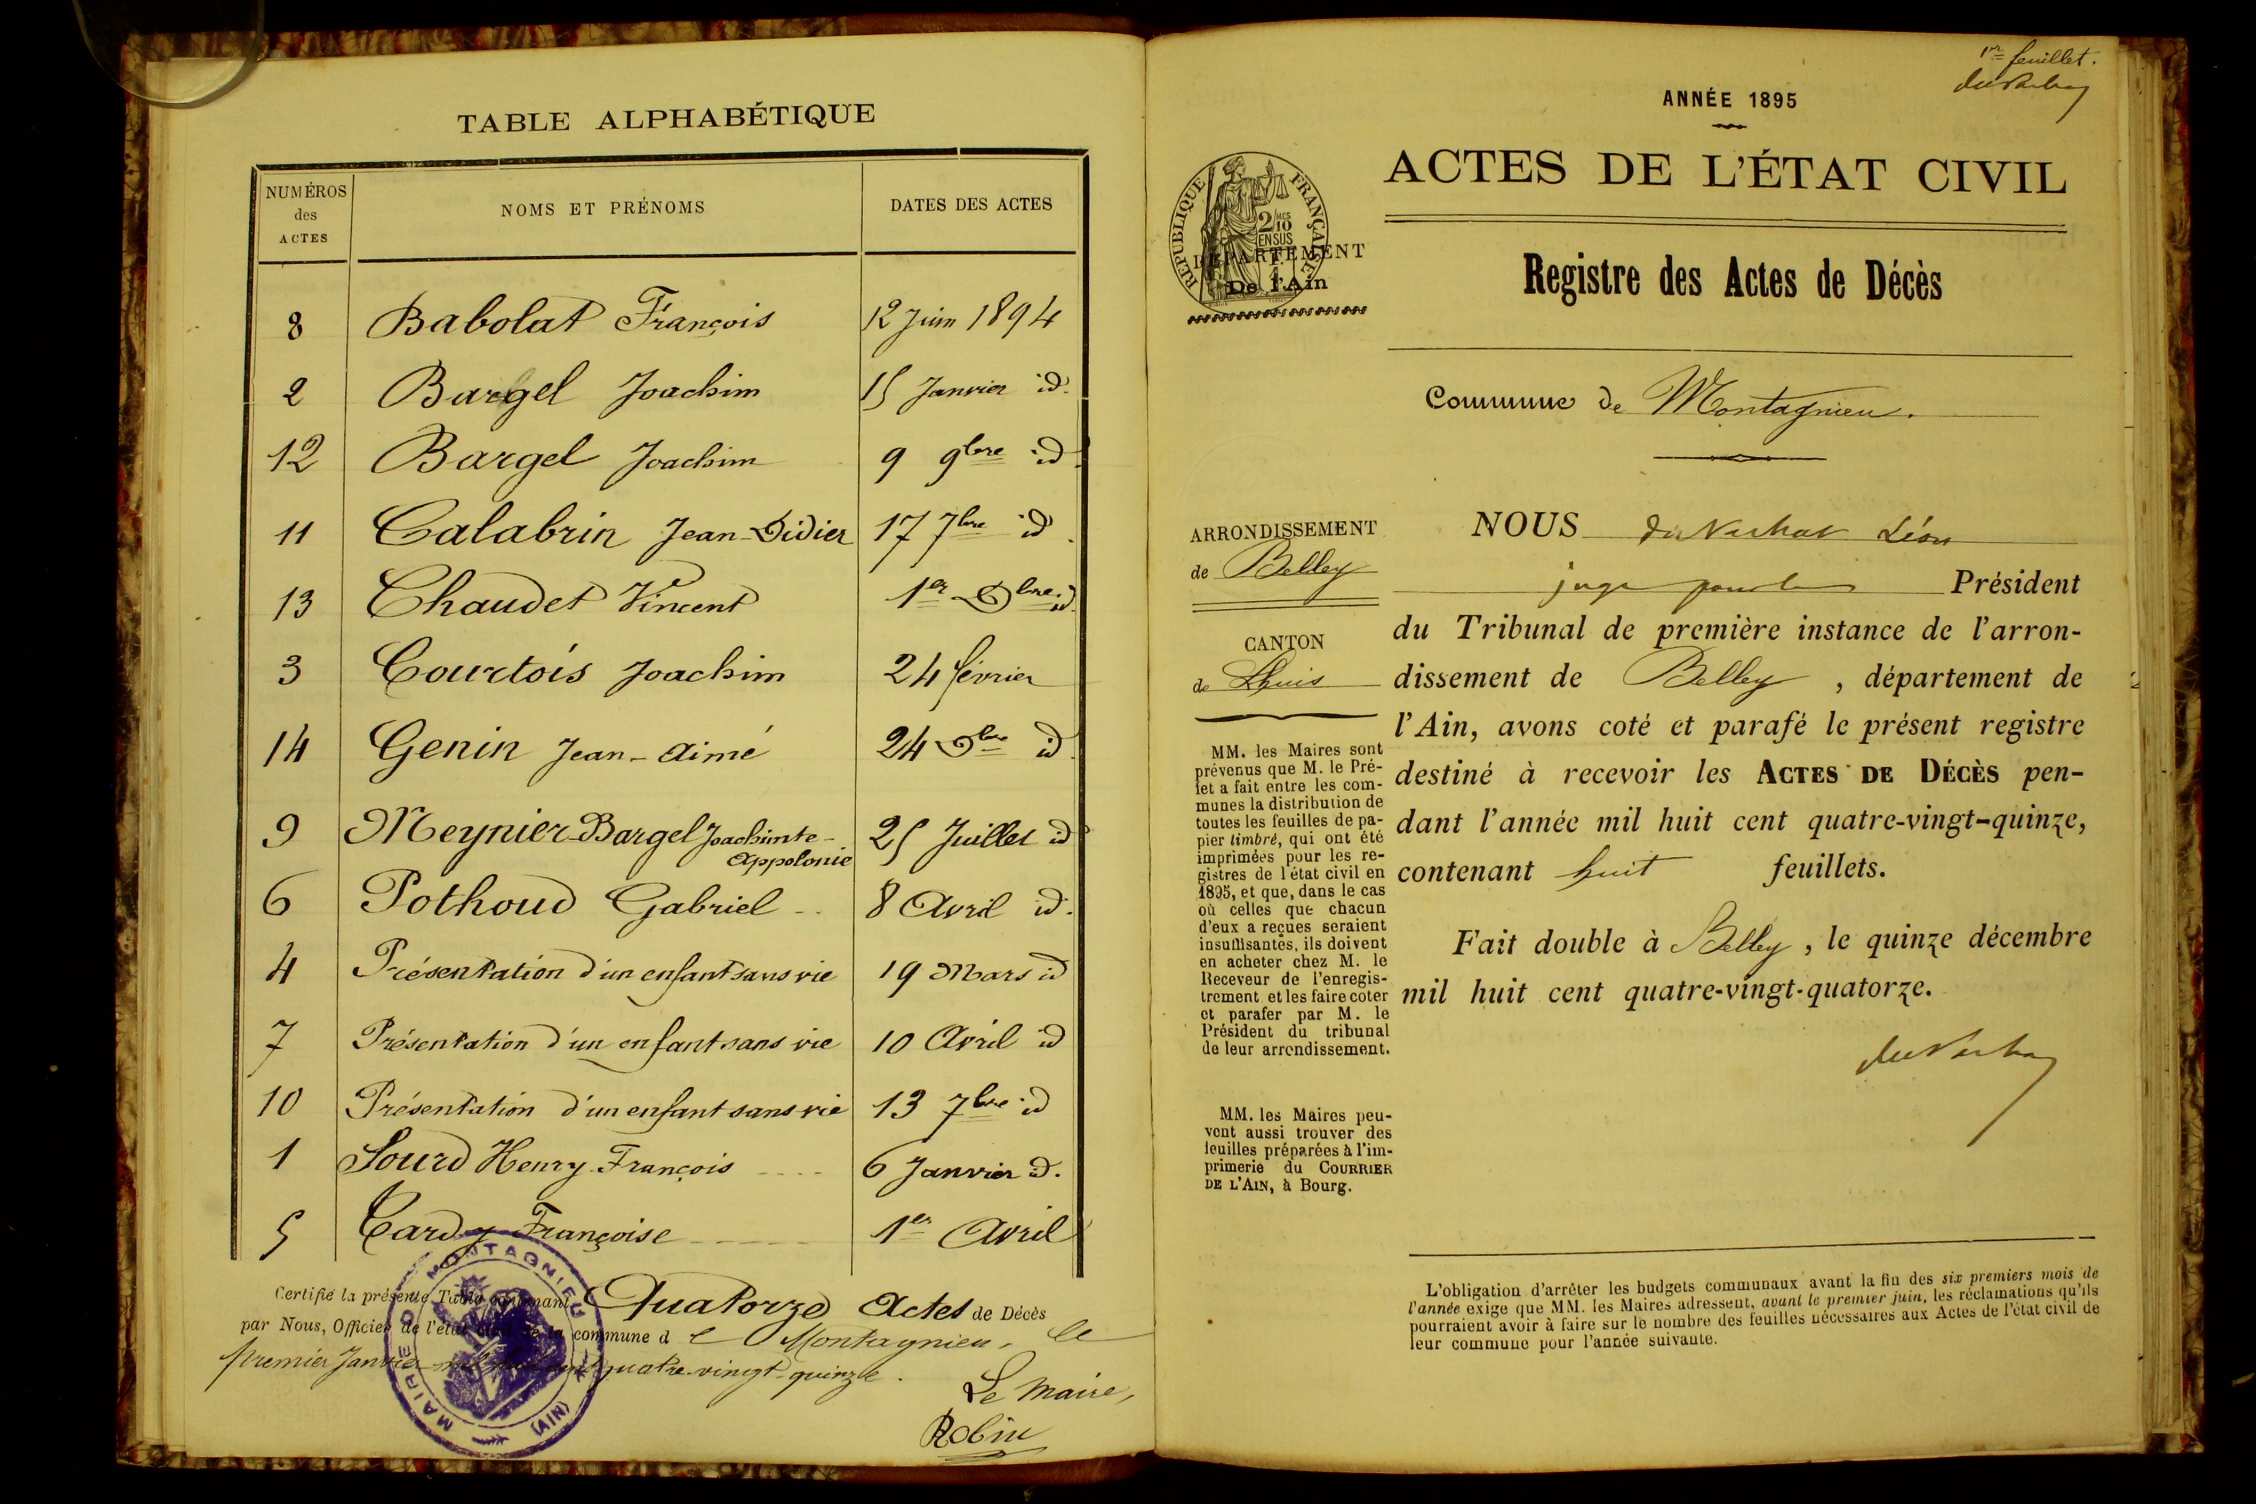 TABLE ALPHABÉTIQUE
NUMÉROS des ACTES
NOMS ET PRÉNOMS
DATES DES ACTES
8 Babolat François 12 Juin 1894
2 Bargel Joachim 15 Janvier id.
12 Bargel Joachim 9 9bre id
11 Calabrin Jean-Didier 17 7bre id.
13 Chaudet Vincent 1er Dbre id
3 Courtois Joachim 24 février
14 Genin Jean-Aimé 24 Dbre id
9 Meynier-Bargel Joachinte- 25 Juillet id
Appolonie
6 Pothoud Gabriel 8 Avril id.
4 Présentation d'un enfant sans vie 19 Mars id
7 Présentation d'un enfant sans vie 10 Avril id
10 Présentation d'un enfant sans vie 13 7bre id
1 Sourd Henry François 6 Janvier id.
5 Cardy Françoise 1er Avril
Certifié la présente Table contenant Quatorze Actes de Décès
par Nous, Officier de l'état civil de la commune de Montagnieu, le
premier Janvier mil huit cent quatre-vingt-quinze.
Le Maire,
Robin
MAIRIE DE MONTAGNIEU (AIN)
1er feuillet.
ANNÉE 1895
ACTES DE L'ÉTAT CIVIL
RÉPUBLIQUE FRANÇAISE
2/10 EN SUS
DÉPARTEMENT
De l'Ain
Registre des Actes de Décès
Commune de Montagnieu.
ARRONDISSEMENT
de Belley
CANTON
de Lhuis
MM. les Maires sont
prévenus que M. le Pré-
fet a fait entre les com-
munes la distribution de
toutes les feuilles de pa-
pier timbré, qui ont été
imprimées pour les re-
gistres de l'état civil en
1895, et que, dans le cas
où celles que chacun
d'eux a reçues seraient
insuffisantes, ils doivent
en acheter chez M. le
Receveur de l'enregis-
trement et les faire coter
et parafer par M. le
Président du tribunal
de leur arrondissement.
MM. les Maires peu-
vent aussi trouver des
feuilles préparées à l'im-
primerie du COURRIER
DE L'AIN, à Bourg.
NOUS Léon
juge pour le Président
du Tribunal de première instance de l'arron-
dissement de Belley, département de
l'Ain, avons coté et parafé le présent registre
destiné à recevoir les ACTES DE DÉCÈS pen-
dant l'année mil huit cent quatre-vingt-quinze,
contenant huit feuillets.
Fait double à Belley, le quinze décembre
mil huit cent quatre-vingt-quatorze.
L'obligation d'arrêter les budgets communaux avant la fin des six premiers mois de
l'année exige que MM. les Maires adressent, avant le premier juin, les réclamations qu'ils
pourraient avoir à faire sur le nombre des feuilles nécessaires aux Actes de l'état civil de
leur commune pour l'année suivante.